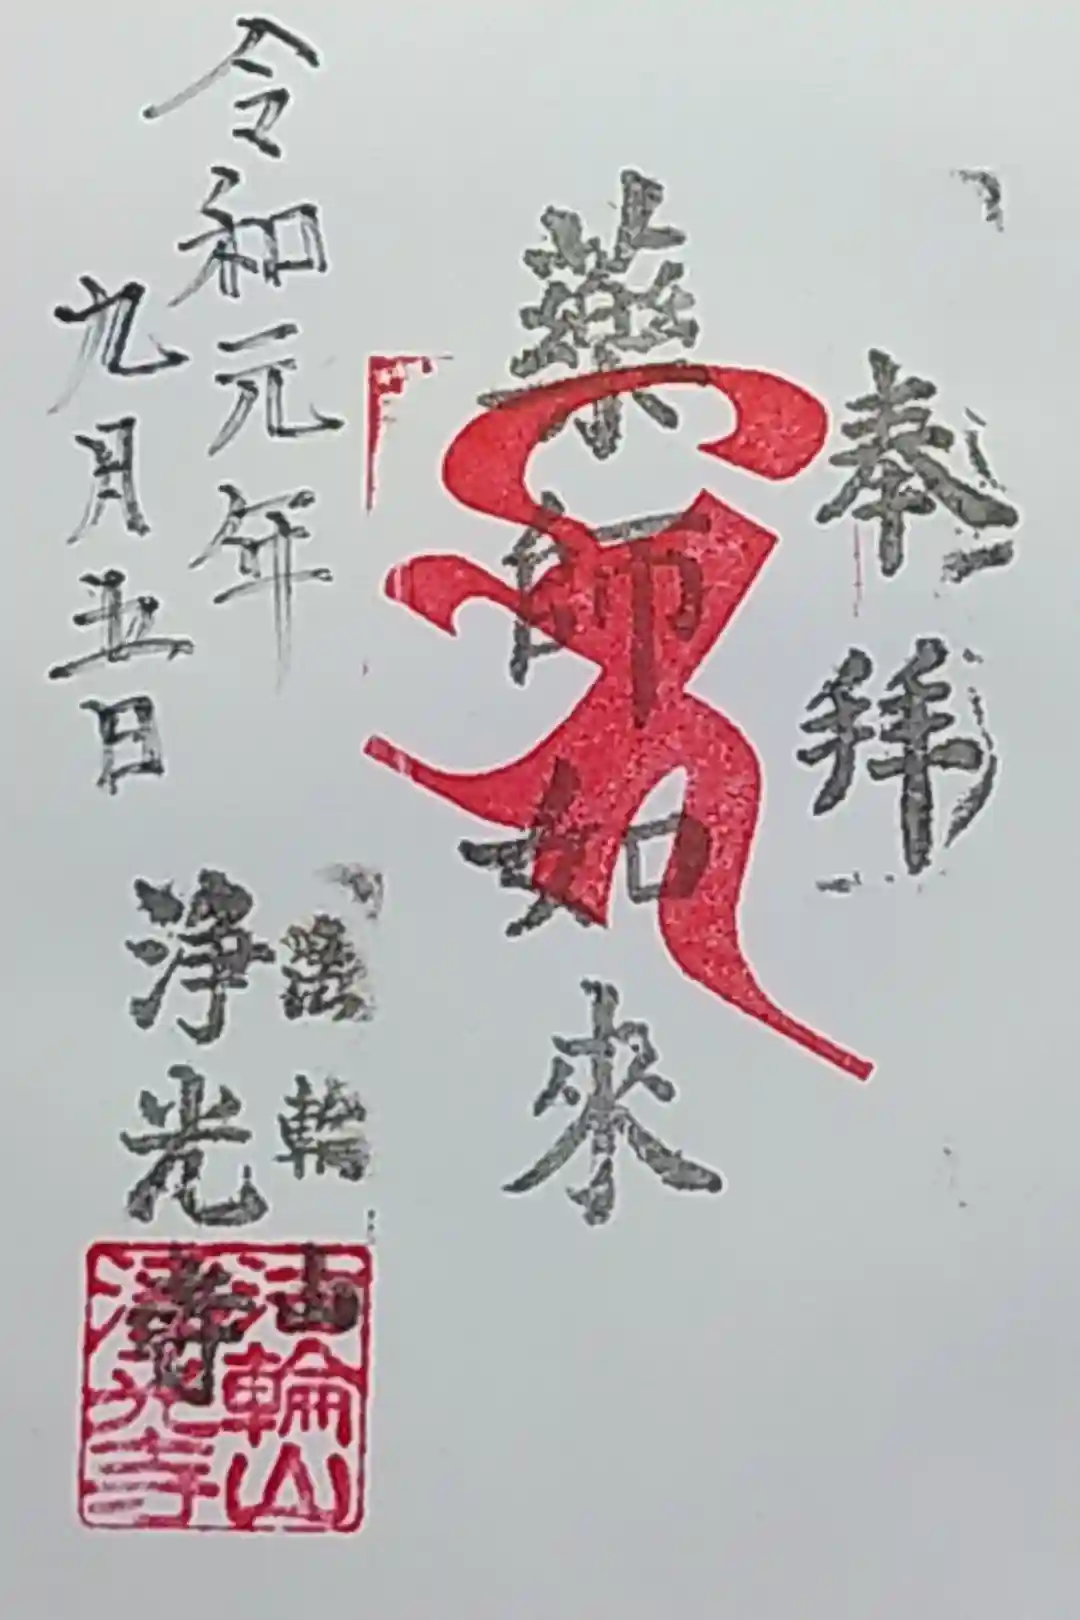 奉拝
藥師如來
令和元年
九月五日
輪山
浄光寺
法輪山
浄光寺